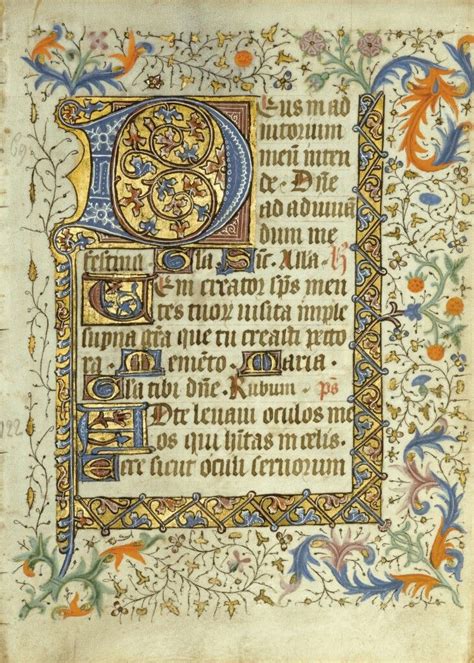 Deus in ad
iutorium
meū inten
de. Dn̄e
ad adiuuā
dum me
festina. Gl̄a. Sic̄. Alla. h̄
Ueni creator sp̄s men
tes tuor̄ uisita imple
supna gr̄a que tu creasti pecto
ra. Memēto. Maria.
Gl̄a tibi dn̄e. Rubum. ps
Ad te leuaui oculos me
os qui h̄itas in celis.
Ecce sicut oculi seruorum